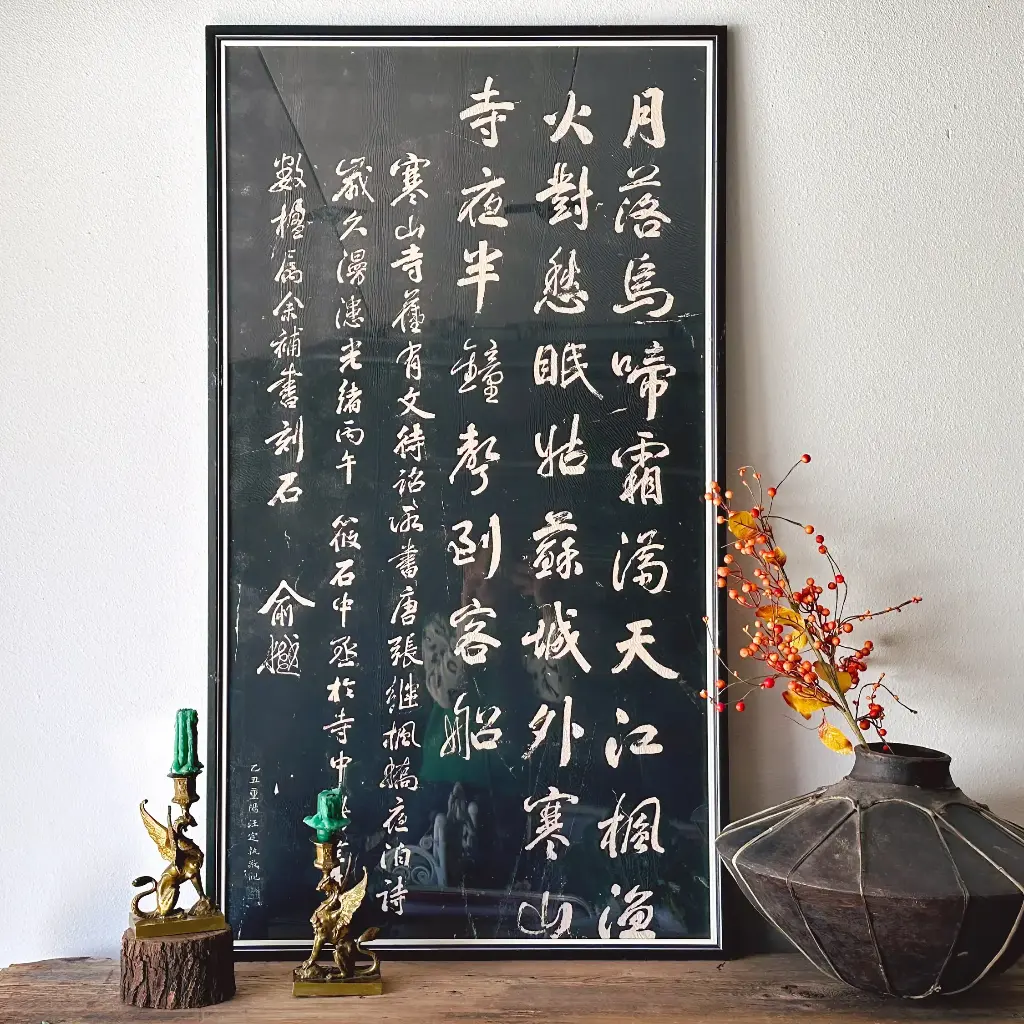 月落烏啼霜滿天江楓漁
火對愁眠姑蘇城外寒山
寺夜半鐘聲到客船
寒山寺舊有文待詔所書唐張繼楓橋夜泊詩
歲久漫漶光緒丙午 筱石中丞於寺中
數楹屬余補書刻石 俞樾
乙丑重陽汪定執